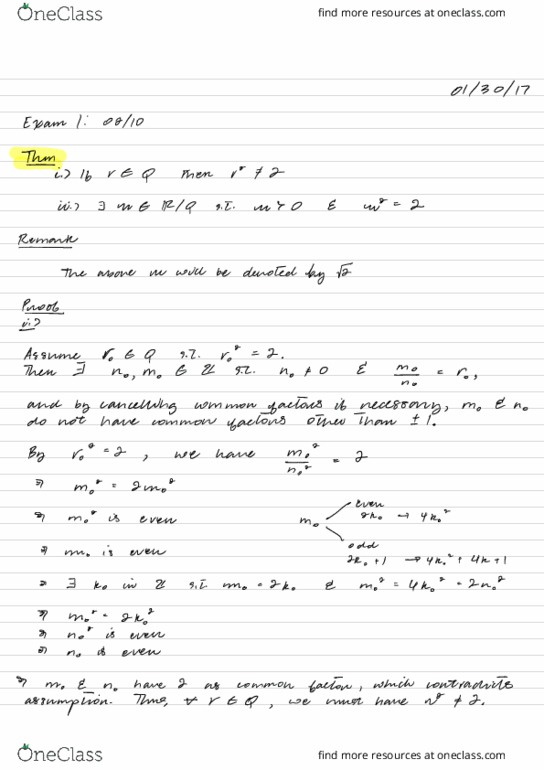 OneClass find more resources at oneclass.com
01/30/17
Exam 1: 02/10
Thm
i.) If r ∈ Q then r² ≠ 2
ii.) ∃ m ∈ ℝ/Q s.t. m > 0 & m² = 2
Remark
The above m will be denoted by √2
Proof
i.)
Assume r₀ ∈ Q s.t. r₀² = 2.
Then ∃ n₀, m₀ ∈ ℤ s.t. n₀ ≠ 0 & m₀/n₀ = r₀,
and by cancelling common factors if necessary, m₀ & n₀
do not have common factors other than ±1.
By r₀² = 2, we have m₀²/n₀² = 2
⇒ m₀² = 2m₀²
⇒ m₀² is even
m₀ even 2k₀ → 4k₀²
⇒ m₀ is even
odd 2k₀+1 → 4k₀² + 4k + 1
⇒ ∃ k₀ in ℤ s.t. m₀ = 2k₀ & m₀² = 4k₀² = 2n₀²
⇒ m₀² = 2k₀²
⇒ n₀² is even
⇒ n₀ is even
⇒ m₀ & n₀ have 2 as common factor, which contradicts
assumption. Thus, ∀ r ∈ Q, we must have r² ≠ 2.
OneClass find more resources at oneclass.com